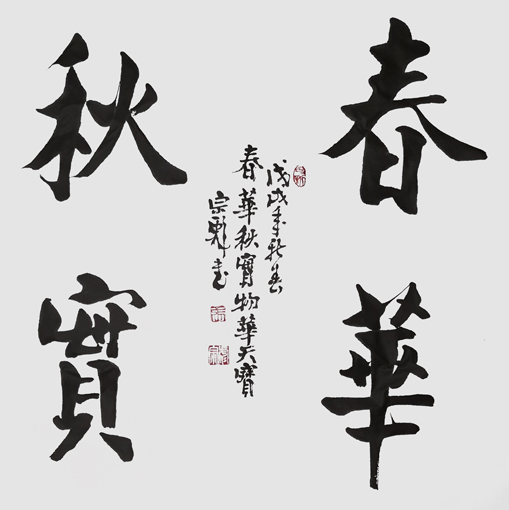 春華
秋實
戊戌年新春
春華秋寶物華天寶
宗
書